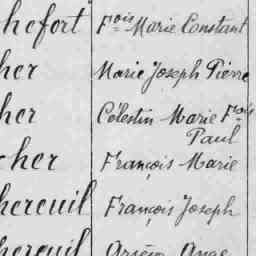 hefort Fois Marie Constant
her Marie Joseph Pierre
her Célestin Marie Fois
Paul
cher François Marie
hereuil François Joseph
hereuil Arsène Ange